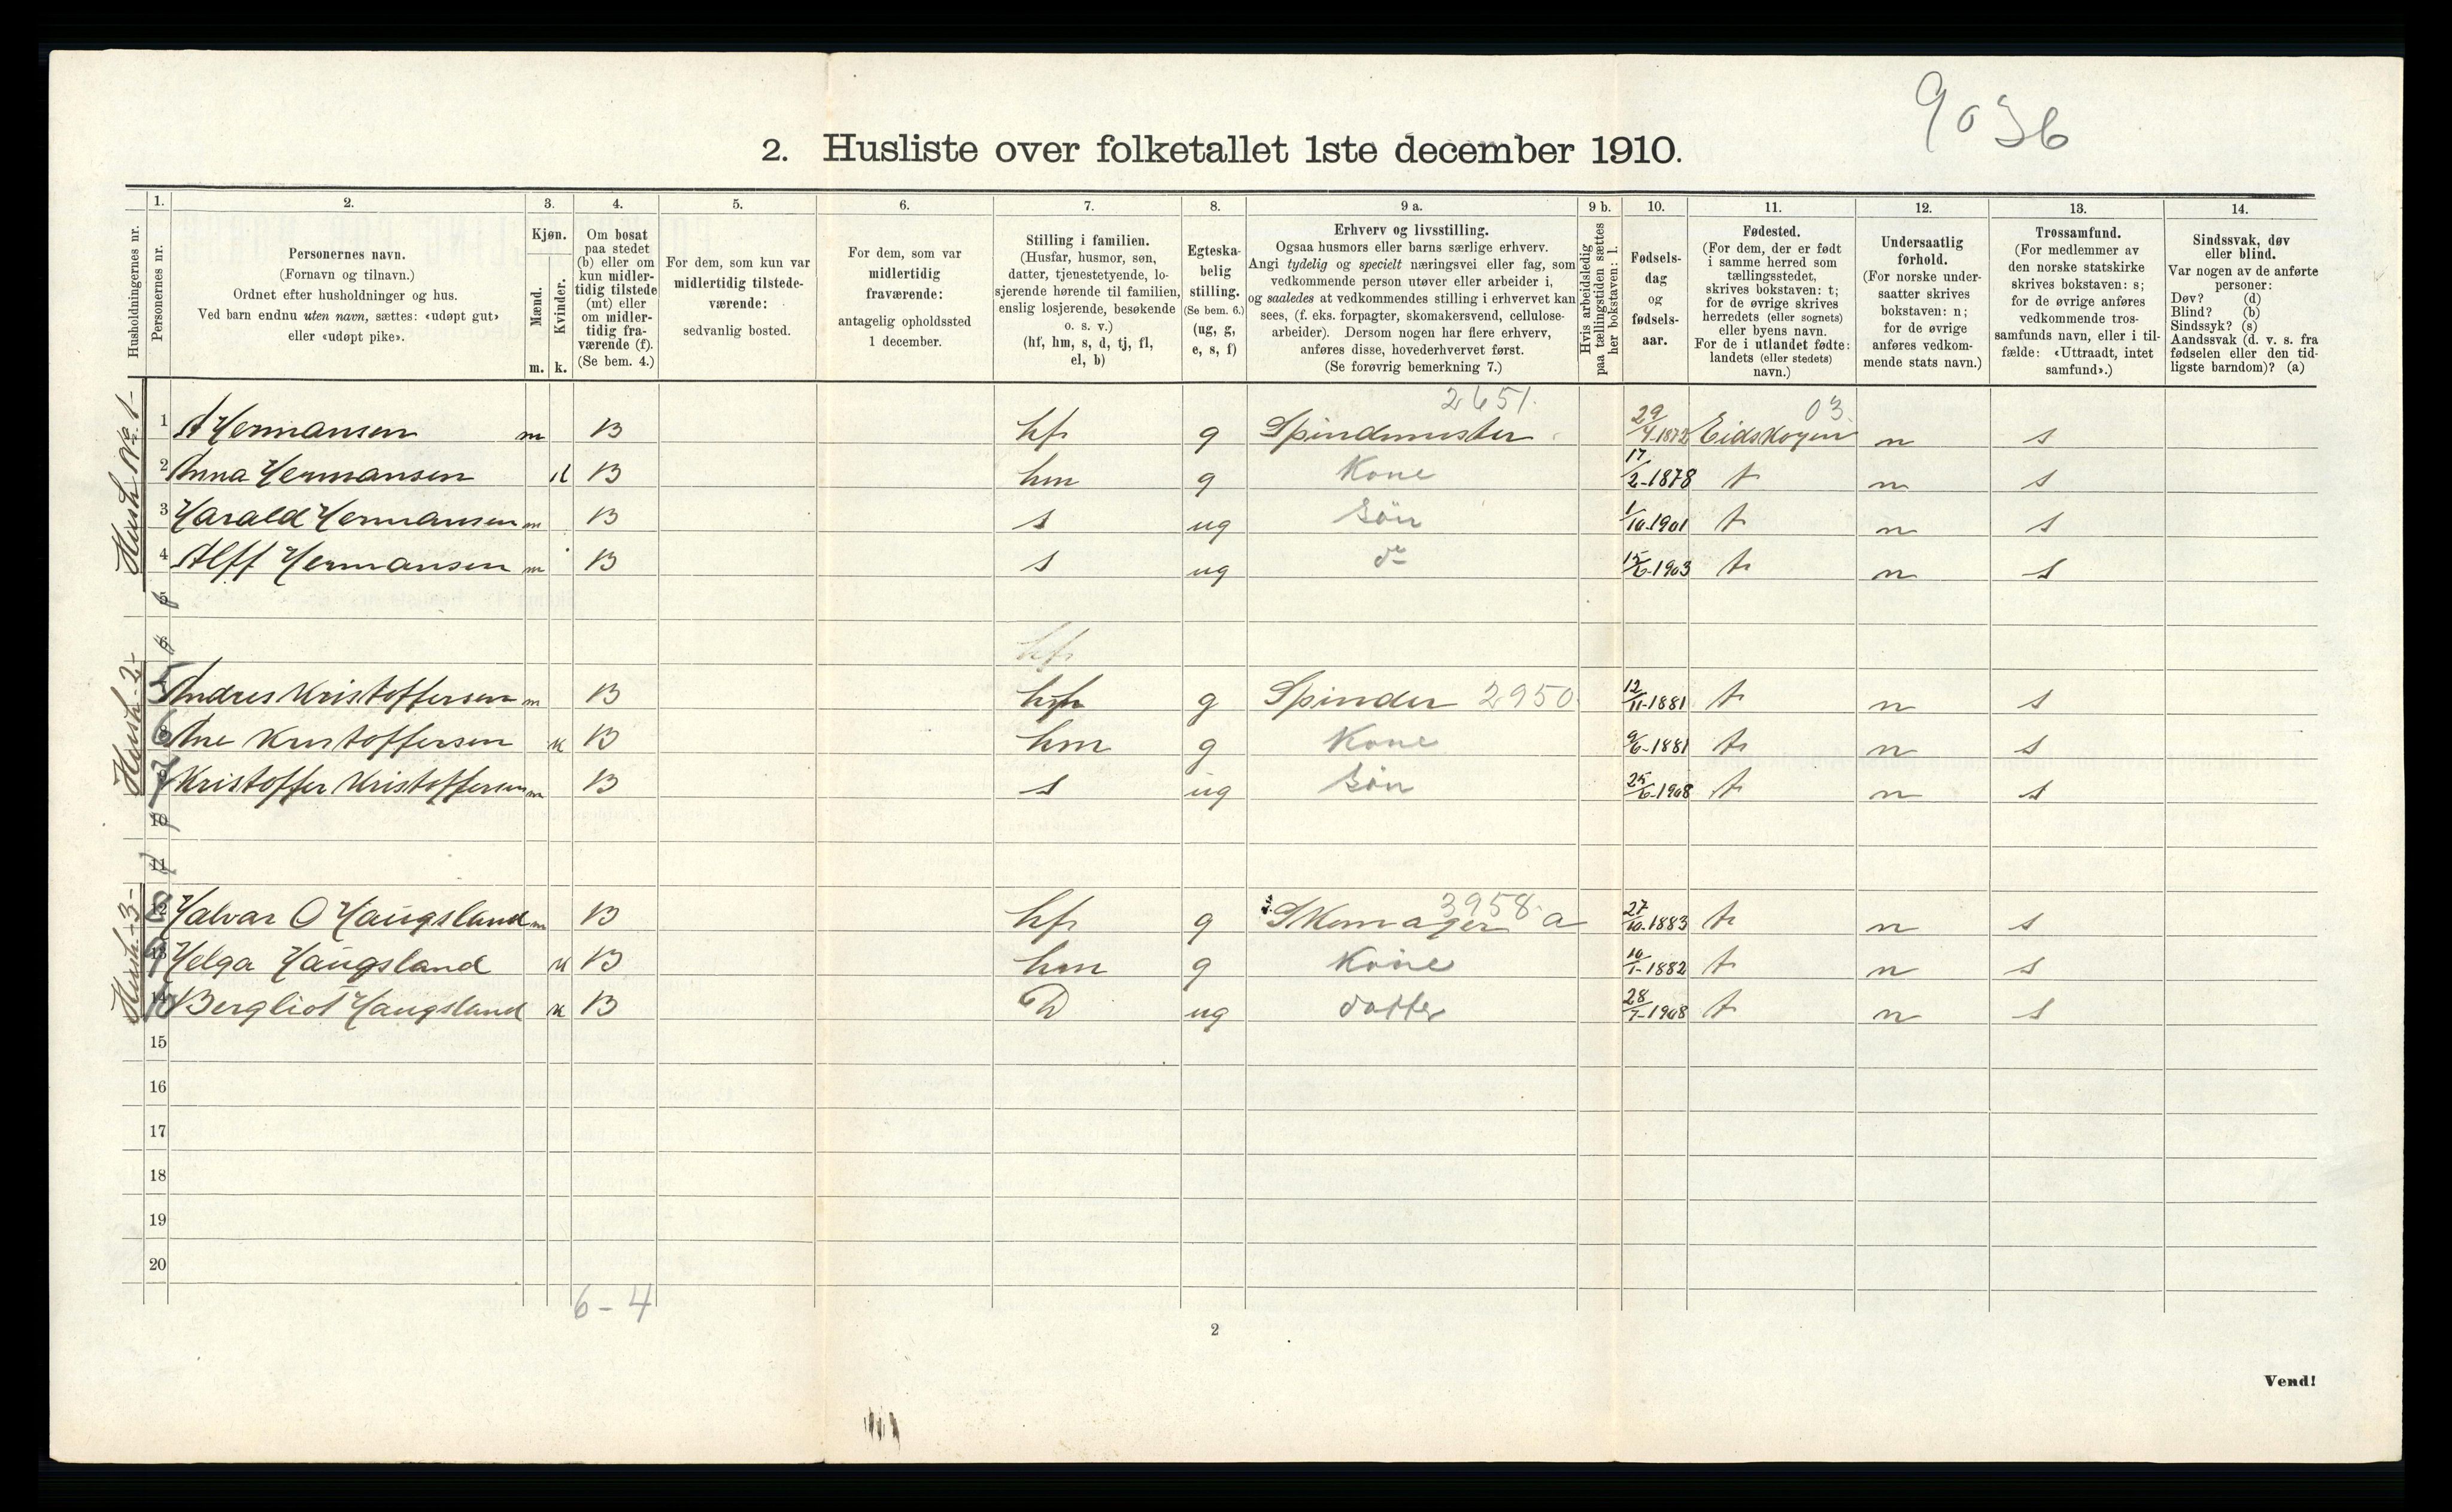 9036
2. Husliste over folketallet 1ste december 1910.
Husholdningernes nr.
1. Personernes nr.
2. Personernes navn.
(Fornavn og tilnavn.)
Ordnet efter husholdninger og hus.
Ved barn endnu uten navn, sættes: «udøpt gut»
eller «udøpt pike».
3. Kjøn.
Mænd. Kvinder.
m. k.
4. Om bosat
paa stedet
(b) eller om
kun midler-
tidig tilstede
(mt) eller
om midler-
tidig fra-
værende (f).
(Se bem. 4.)
5. For dem, som kun var
midlertidig tilstede-
værende:
sedvanlig bosted.
6. For dem, som var
midlertidig
fraværende:
antagelig opholdssted
1 december.
7. Stilling i familien.
(Husfar, husmor, søn,
datter, tjenestetyende, lo-
sjerende hørende til familien,
enslig losjerende, besøkende
o. s. v.)
(hf, hm, s, d, tj, fl,
el, b)
8. Egteska-
belig
stilling.
(Se bem. 6.)
(ug, g,
e, s, f)
9 a. Erhverv og livsstilling.
Ogsaa husmors eller barns særlige erhverv.
Angi tydelig og specielt næringsvei eller fag, som
vedkommende person utøver eller arbeider i,
og saaledes at vedkommendes stilling i erhvervet kan
sees, (f. eks. forpagter, skomakersvend, cellulose-
arbeider). Dersom nogen har flere erhverv,
anføres disse, hovederhvervet først.
(Se forøvrig bemerkning 7.)
9 b. Hvis arbeidsledig
paa tællingstiden sættes
her bokstaven: l.
10. Fødsels-
dag
og
fødsels-
aar.
11. Fødested.
(For dem, der er født
i samme herred som
tællingsstedet,
skrives bokstaven: t;
for de øvrige skrives
herredets (eller sognets)
eller byens navn.
For de i utlandet fødte:
landets (eller stedets)
navn.)
12. Undersaatlig
forhold.
(For norske under-
saatter skrives
bokstaven: n;
for de øvrige
anføres vedkom-
mende stats navn.)
13. Trossamfund.
(For medlemmer av
den norske statskirke
skrives bokstaven: s;
for de øvrige anføres
vedkommende tros-
samfunds navn, eller i til-
fælde: «Uttraadt, intet
samfund».)
14. Sindssvak, døv
eller blind.
Var nogen av de anførte
personer:
Døv? (d)
Blind? (b)
Sindssyk? (s)
Aandssvak (d. v. s. fra
fødselen eller den tid-
ligste barndom)? (a)
Hush No. 1-
2651. 03.
1 A Hermansen m B hf g Spindemester 29/4-1872 Eidskogen n s
2 Anna Hermansen k B hm g Kone 17/2-1878 t n s
3 Harald Hermansen m B s ug Søn 1/10-1901 t n s
4 Alff Hermansen m B s ug do 15/6-1903 t n s
5
6 hf
Hush. 2-
5 Andres Kristoffersen m B hf g Spinder 2950 12/11-1881 t n s
8 6 Ane Kristoffersen k B hm g Kone 9/6-1881 t n s
9 7 Kristoffer Kristoffersen m B s ug Søn 25/6-1908 t n s
10
11
Hush. 3-
3958
12 8 Halvar O Haugsland m B hf g Skomager a 27/10-1883 t n s
13 9 Helga Haugsland k B hm g Kone 10/1-1882 t n s
14 10 Bergliot Haugsland k B D ug datter 28/7-1908 t n s
15
16
17
18
19
20
6-4
2
Vend!